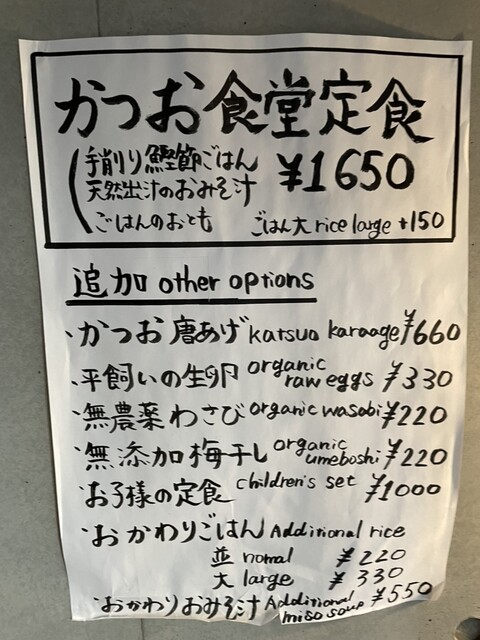 かつお食堂定食
手削り鰹節ごはん
天然出汁のおみそ汁
ごはんのおとも
¥1650
ごはん大 rice large +150
追加 other options
・かつお唐あげ katsuo karaage ¥660
・平飼いの生卵 organic raw eggs ¥330
・無農薬わさび organic wasabi ¥220
・無添加梅干し organic umeboshi ¥220
・お子様の定食 children's set ¥1000
・おかわりごはん Additional rice
並 nomal ¥220
大 large ¥330
・おかわりおみそ汁 Additional miso soup ¥550